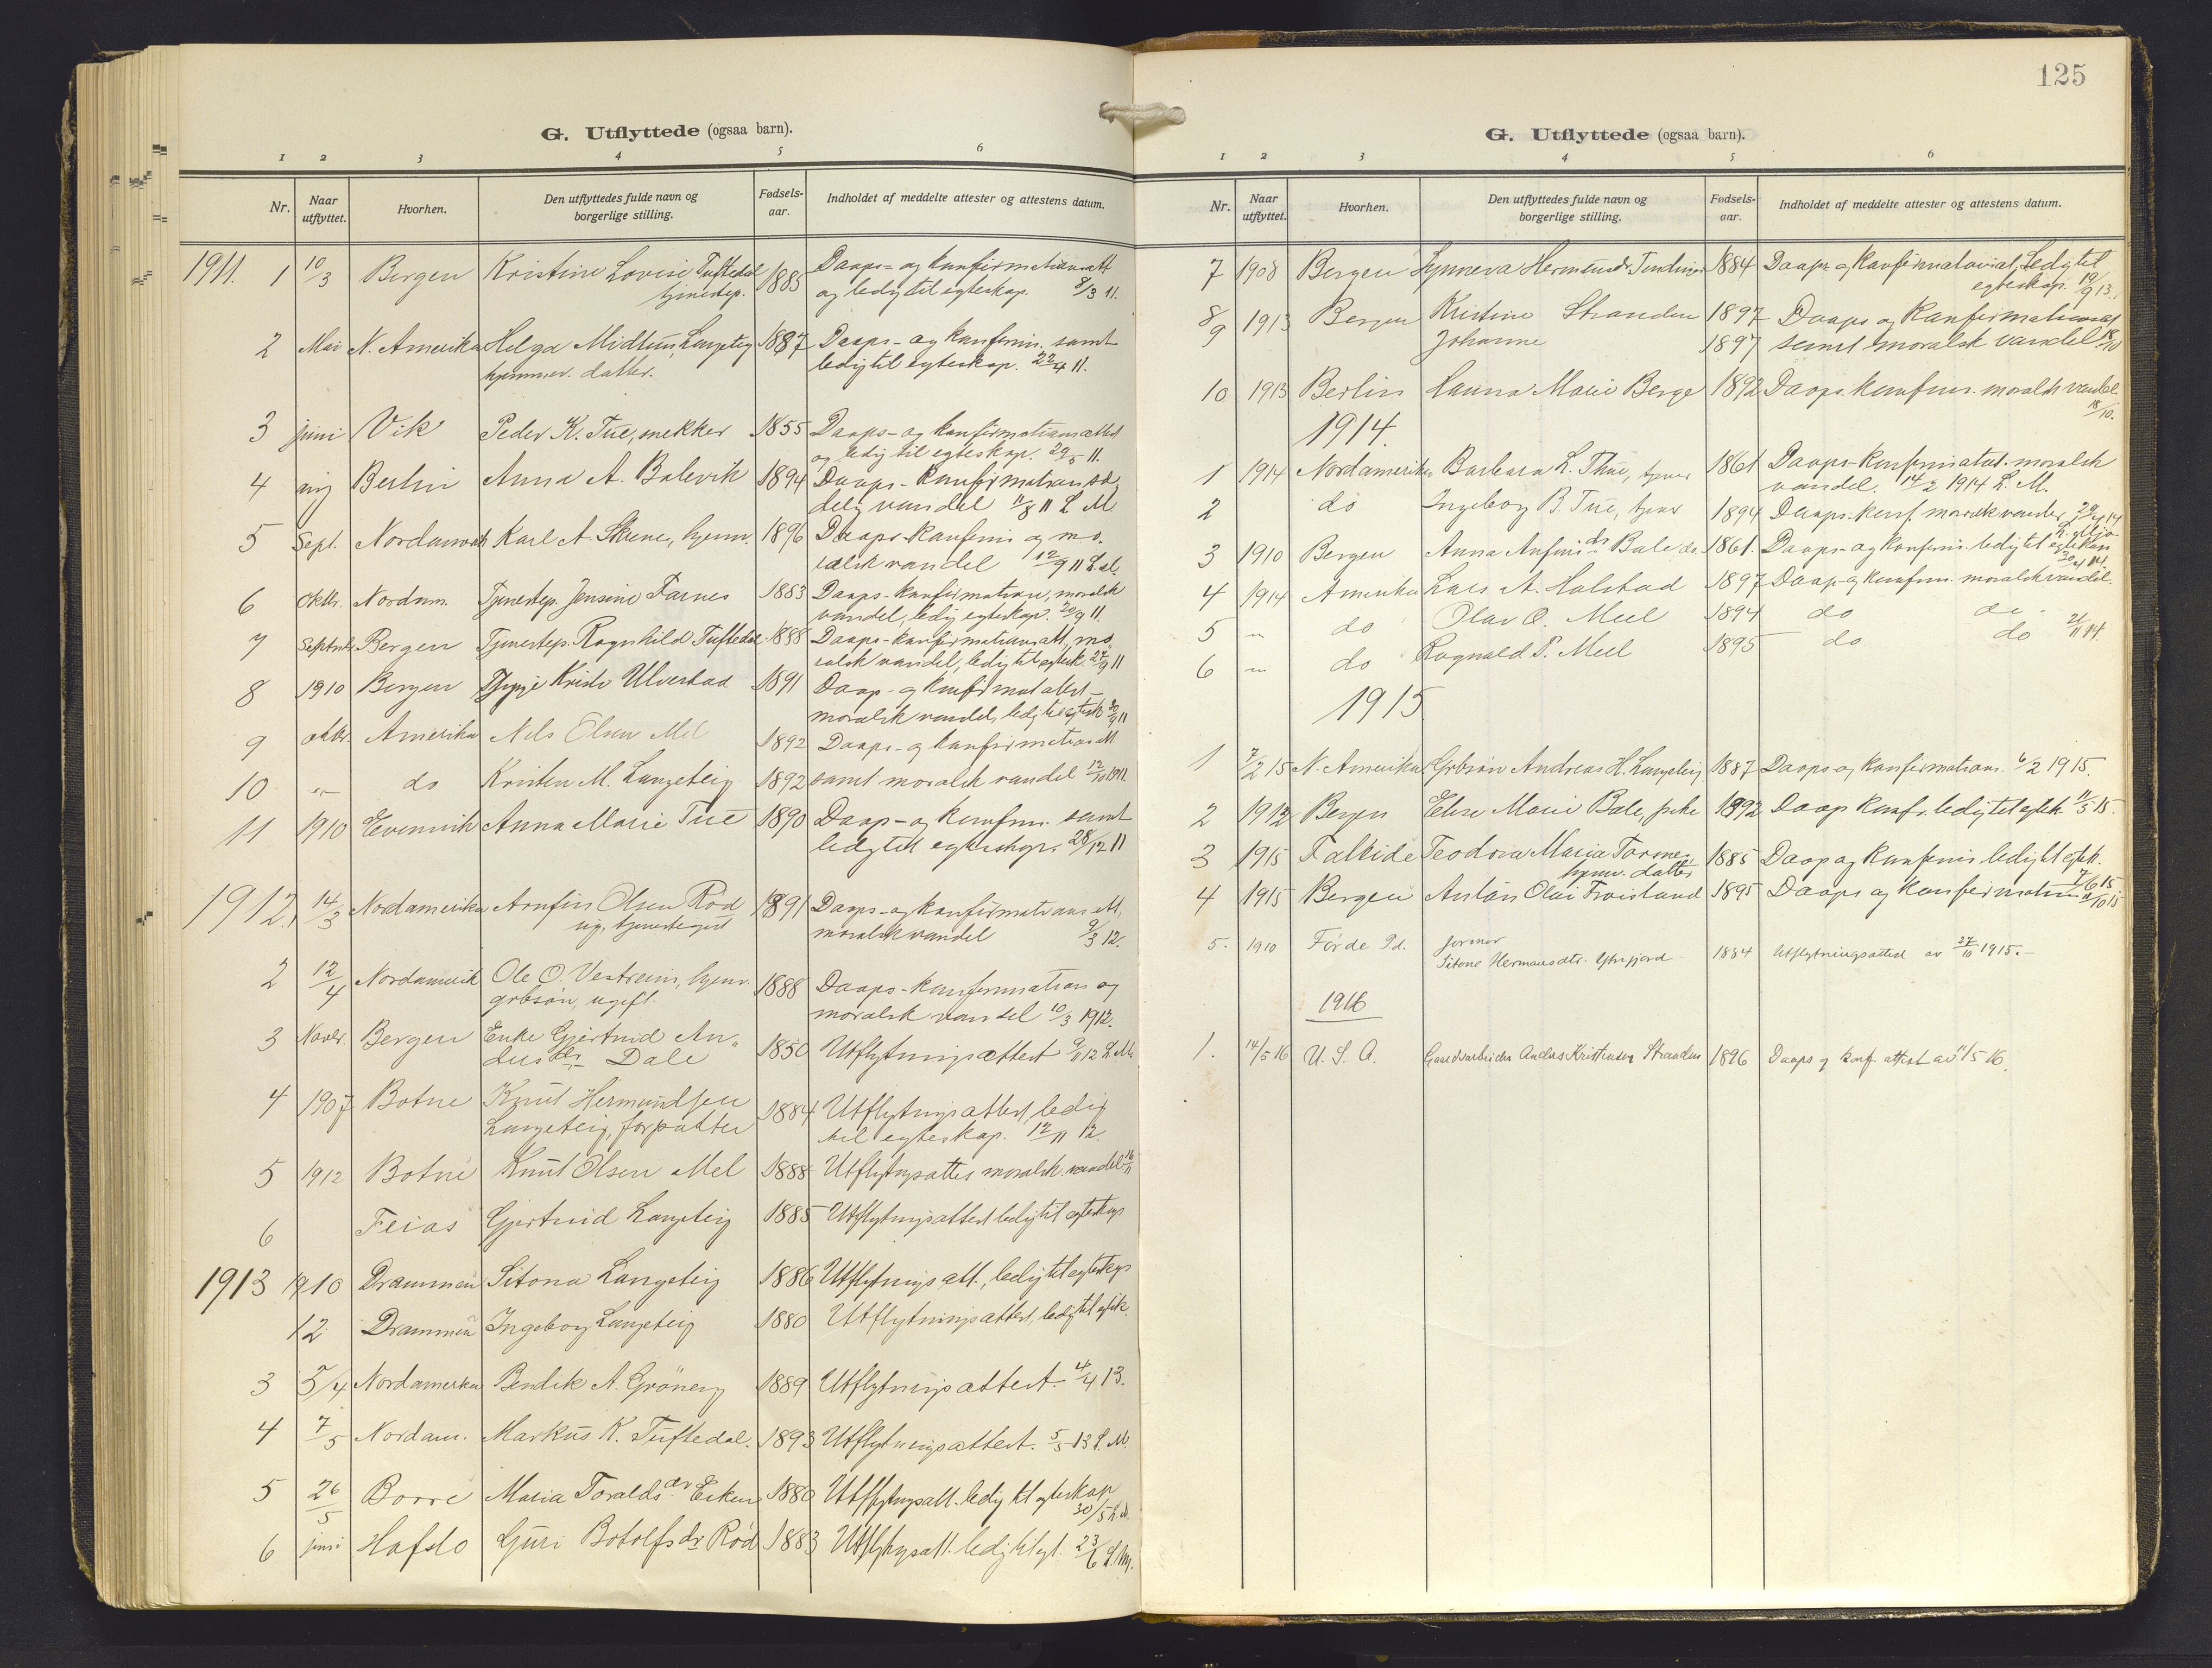 G. Utflyttede (ogsaa barn).
1 2 3 4 5 6
Nr. Naar utflyttet. Hvorhen. Den utflyttedes fulde navn og borgerlige stilling. Fødsels-aar. Indholdet af meddelte attester og attestens datum.
1911. 1 10/3 Bergen Kristine Lovise Tuftedal 1885 Daaps- og konfirmationsatt
tjenestep. og ledig til egteskap. 8/3 11.
2 Mai N. Amerika Helga Midtun Langeteig 1887 Daaps- og konfirm. samt
hjemmev. datter. ledig til egteskap. 22/4 11.
3 juni Vik Peder K. Tue, snekker 1855 Daaps- og konfirmationsattest
og ledig til egteskap. 29/5 11.
4 aug Berlin Anna A. Balevik 1894 Daaps- konfirmation sæ
delig vandel 11/8 11 L M
5 Sept. Nordamerik Karl A. Skeue, hjemv. 1896 Daaps- konfirm og mo-
ralsk vandel 12/9 11 L.M.
6 Oktbr. Nordam. Tjenestep. Jensine Farnes 1883 Daaps- konfirmation, moralsk
vandel, ledig egteskap. 20/9 11.
7 Septmbr Bergen Tjenestep. Ragnhild Tuftedal 1888 Daaps- konfirmationsatt, mo
ralsk vandel, ledig til egtesk. 27/9 11
8 1910 Bergen Kristi Ulvestad 1891 Daap- og konfirmat attest-
moralsk vandel, ledig til egtesk 30/9 11
9 oktbr. Amerika Nils Olsen Mel 1892 Daaps- og konfirmations att
10 do Kristen M. Langeteig 1892 samt moralsk vandel 12/10 1911
11 1910 Evenvik Anna Marie Tue 1890 Daap- og konfirm. samt
ledig til egteskap. 28/12 11
1912. 1 14/3 Nordamerika Arnfin Olsen Rød 1891 Daaps- og konfirmations att,
ug. tjenestegut moralsk vandel 9/3 12.
2 12/4 Nordamerik Ole O. Vestreim, hjemv. 1888 Daaps- konfirmation og
grbsøn, ugift. moralsk vandel 10/3 1912.
3 Novbr. Bergen Enke Gjertrud An- 1850 Utflytningsattest 9/11 12 L.M.
dersdtr. Dale
4 1907 Botne Knut Hermundsen 1884 Utflytningsattest, ledig
Langeteig, forpakter til egteskap. 12/11 12.
5 1912 Botne Knut Olsen Mel 1888 Utflytngsattes moralsk vandel 16/11
6 Feios Gjertrud Langeteig 1885 Utflytningsattest ledig til egteskap
1913 1 1910 Drammen Sitona Langeteig 1886 Utflytnings att., ledig til egteskap
12 Drammen Ingeborg Langeteig 1880 Utflytningsattest, ledig til egtesk.
3 5/4 Nordamerka Bendik A. Grøneng 1889 Utflytningsattest. 4/4 13.
4 7/5 Nordam. Markus K. Tuftedal. 1893 Utflytningsattest. 5/5 13 L.M.
5 26/5 Borre Maria Toraldsdr Eiken 1880 Utflytngsatt. ledig til egteskap
30/5 L.M.
6 juni Hafslo Guri Botolfsdr Rød 1883 Utflytngsatt. ledig til egt. 23/6 L.M.
125
G. Utflyttede (ogsaa barn).
1 2 3 4 5 6
Nr. Naar utflyttet. Hvorhen. Den utflyttedes fulde navn og borgerlige stilling. Fødsels-aar. Indholdet af meddelte attester og attestens datum.
7 1908 Bergen Synneva Hermundsdr. 1884 Daaps- og konfirmationsat, Ledig til
egteskap. 19/9 13.
8 1913 Bergen Kristine Stranden 1897 Daaps og Konfirmationsat
9 Johanne 1897 samt moralsk vandel 18/10
10 1913 Berlin Hanna Marie Berge 1892 Daaps. konfirm. moralsk vandel
18/10.
1914.
1 1914 Nordamerika Barbara L. Thue, tjener 1861 Daaps- konfirmatat. moralsk
vandel. 14/2 1914 L. M.
2 do Ingeborg B. Tue, tjener 1894 Daaps. konf. moralsk vandel 29/4 14
3 1910 Bergen Anna Anfinsdr Bale do 1861. Daaps- og konfirm. ledig til egteskap
30/4 14.
4 1914 Amerika Lars A. Halstad 1897 Daap- og konfirm. moralsk vandel.
5 " do Olav O. Meel 1894 do do
6 " do Ragnvald P. Meel 1895 do do 21/11 14.
1915
1 7/2 15 N. Amerika Grbsøn Andreas H. Langeteig 1887 Daaps og konfirmations. 6/2 1915.
2 1912 Bergen Eline Marie Bale, pike 1892 Daap konfr. ledig til egtesk. 11/5 15.
3 1915 Falkide Teodora Maria Tormes 1885 Daap og konfirm ledig til egtesk.
hjemv. datter 7/6 15
4 1915 Bergen Anton Olai Froistand 1895 Daaps og konfirmation 15
5. 1910 Førde Pd. jormor
Sitone Hermansdtr. Ytrefjord 1884 Utflytningsattest av 27/10 1915.-
1916
1. 14/5 16 U. S. A. Gaardsarbeider Anders Kristensen Stranden 1896 Daaps og konf. attest av 11/5 16.